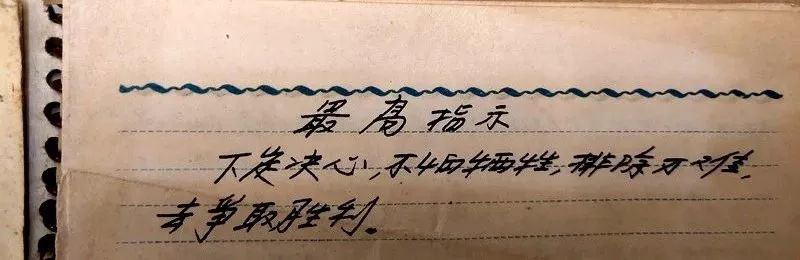 最高指示
下定决心,不怕牺牲,排除万难,
去争取胜利.